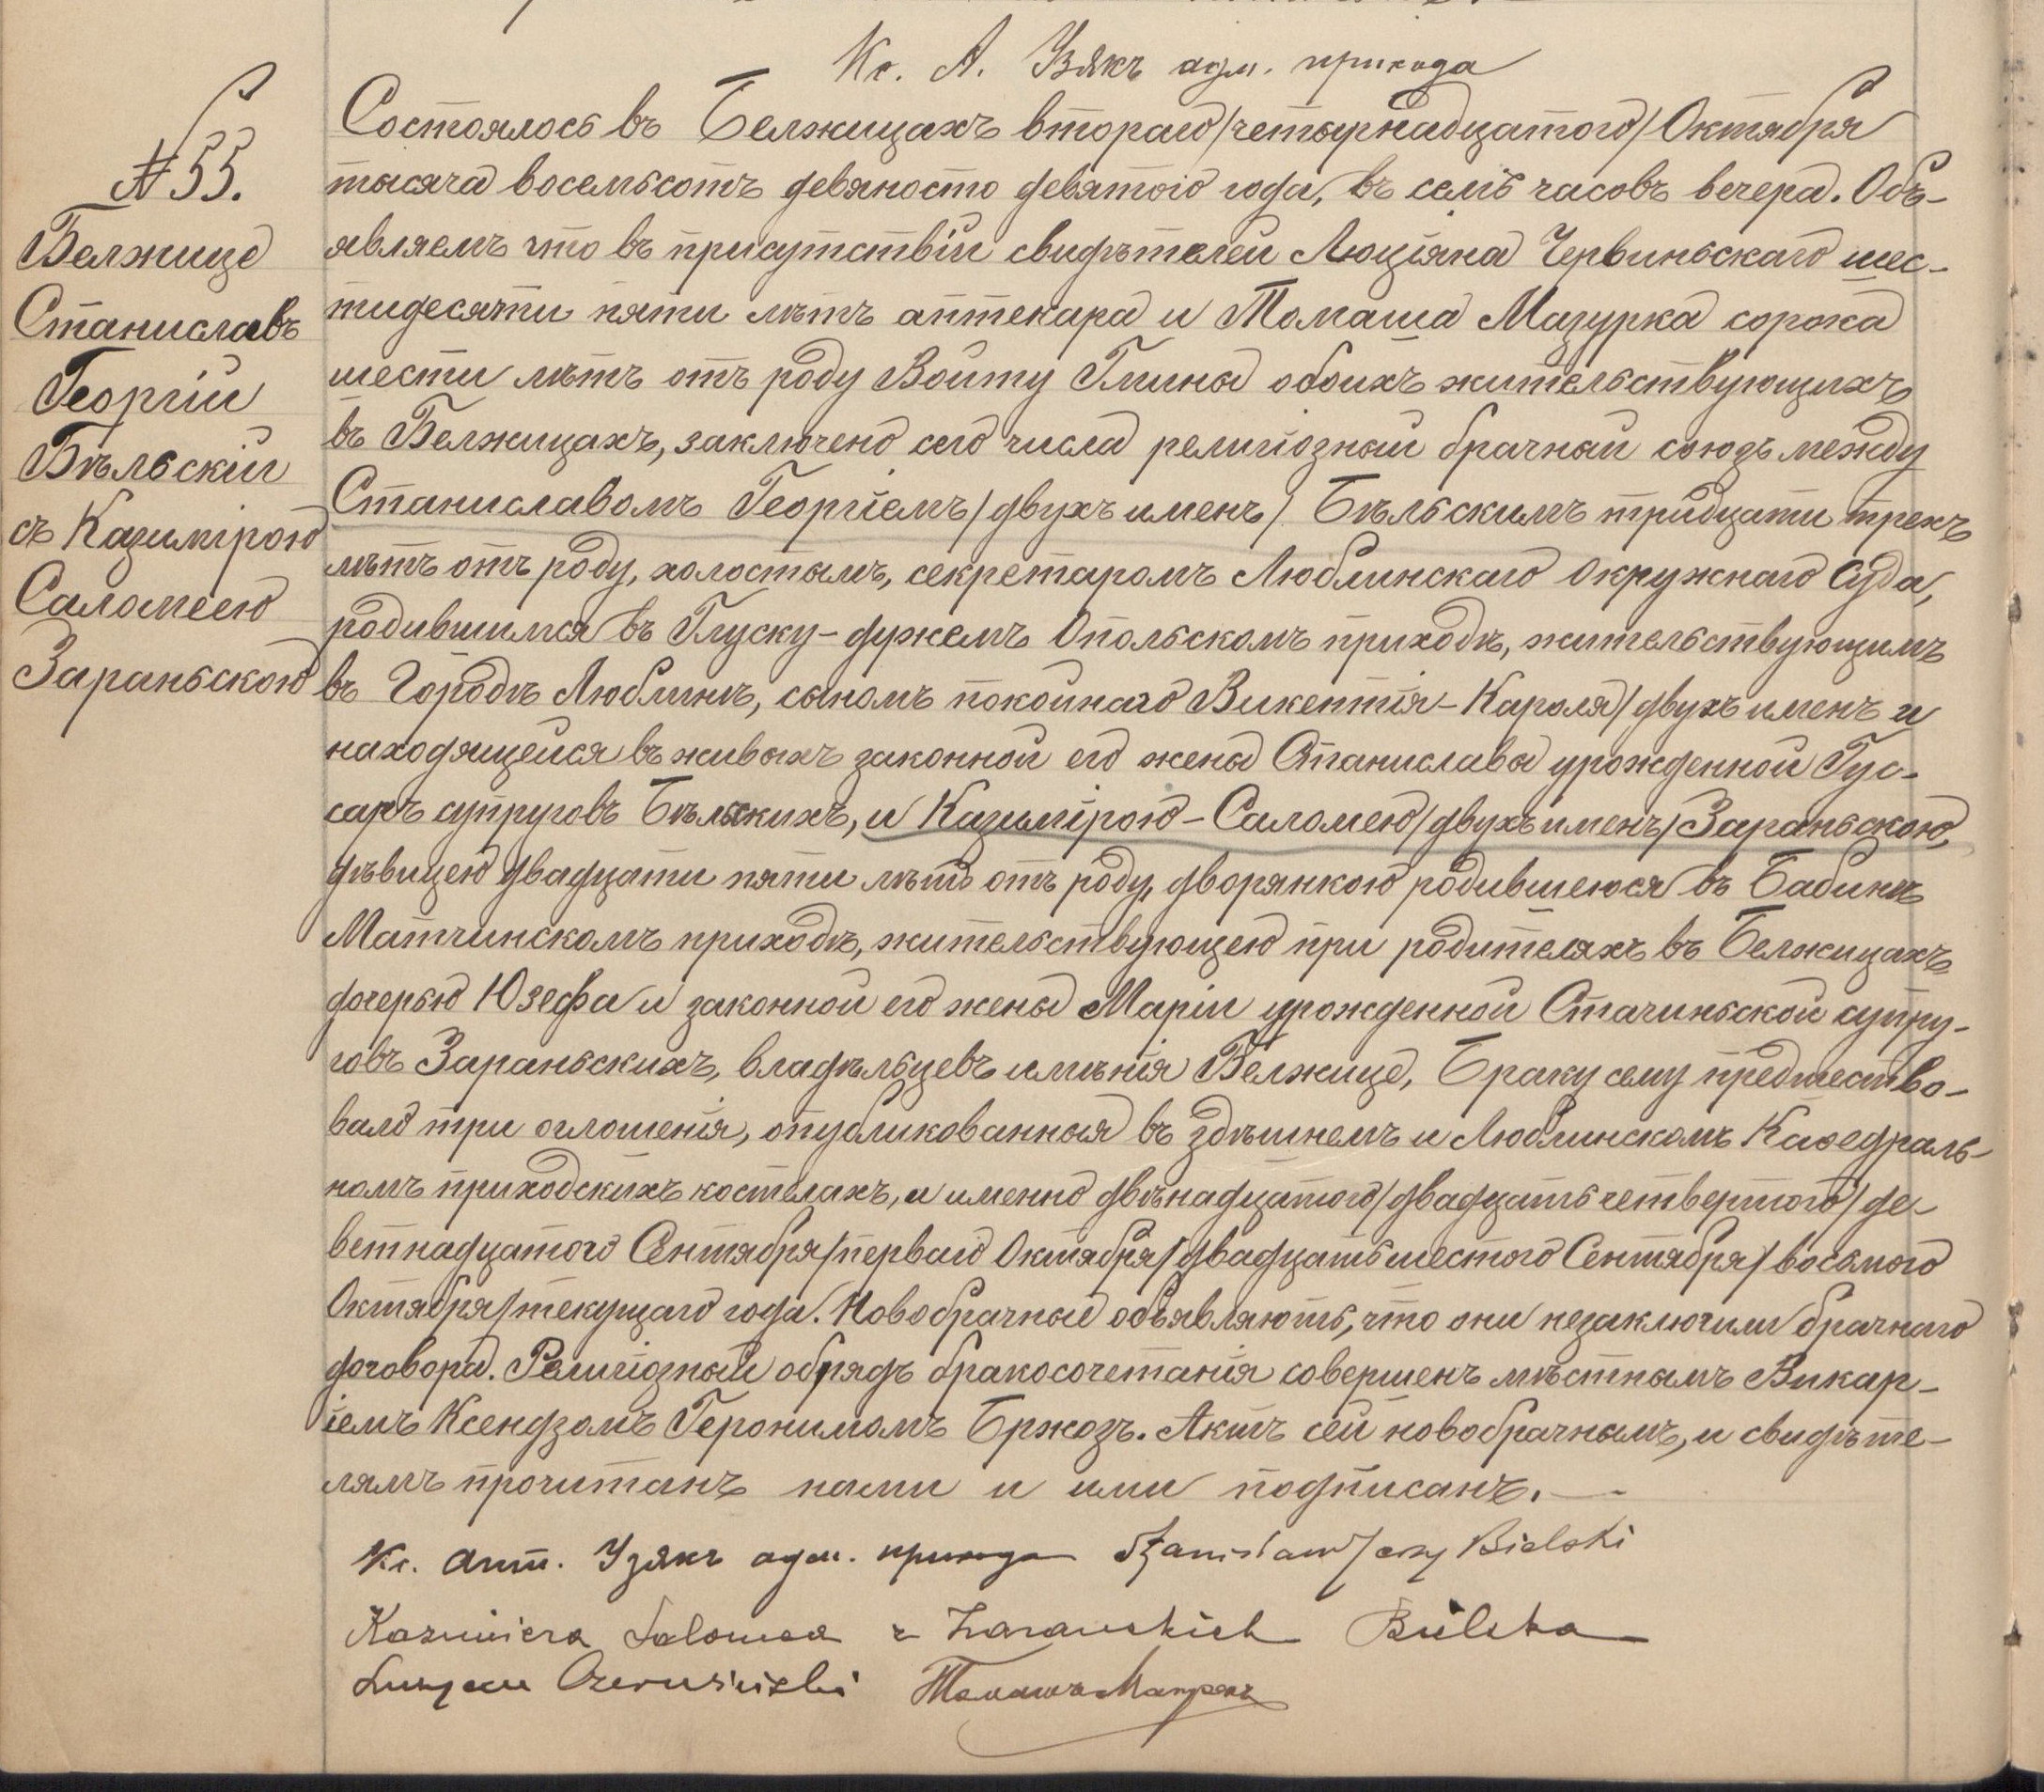 Кс. А. Узякъ адм. прихода
№ 55.
Белжице
Станиславъ
Георгій
Бѣльскій
съ Казимірою
Саломеею
Зараньскою
Состоялось въ Белжицахъ втораго/четырнадцатого/Октября
тысяча восемьсотъ девяносто девятого года, въ семь часовъ вечера. Объ-
являемъ что въ присутствіи свидѣтелей Люціяна Червиньскаго шес-
тидесяти пяти лѣтъ аптекара и Томаша Мазурка сорока
шести лѣтъ отъ роду Войту Гмины обоихъ жительствующихъ
въ Белжицахъ, заключено сего числа религіозный брачный союзъ между
Станиславомъ Георгіемъ/двухъ именъ/ Бѣльскимъ тридцати трехъ
лѣтъ отъ роду, холостымъ, секретаромъ Люблинскаго Окружнаго Суда,
родившимся въ Глуску-дужемъ Опольскомъ приходѣ, жительствующимъ
въ Городѣ Люблинѣ, сыномъ покойнаго Викентія-Кароля/двухъ именъ и
находящейся въ живыхъ законной его жены Станиславы урожденной Гус-
саръ супруговъ Бѣльскихъ, и Казимірою-Саломею/двухъ именъ/Зараньскою,
дѣвицею двадцати пяти лѣтъ отъ роду, дворянкою родившеюся въ Бабинѣ
Матчинскомъ приходѣ, жительствующею при родителяхъ въ Белжицахъ
дочерью Юзефа и законной его жены Маріи урожденной Стачиньской супру-
говъ Зараньскихъ, владѣльцевъ имѣнія Белжице, Браку сему предшество-
вало три оглошенія, опубликованныя въ здѣшнемъ и Люблинскомъ Каѳедраль-
номъ приходскихъ костелахъ, а именно двѣнадцатого/двадцать четвертого/де-
ветнадцатого Сентября/первого Октября/двадцать шестого Сентября/восьмого
Октября/текущаго года. Новобрачные объявляють, что они незаключили брачнаго
договора. Религіозный обрядъ бракосочетанія совершенъ мѣстнымъ Викар-
іемъ Ксендзомъ Геронимомъ Бржозъ. Актъ сей новобрачнымъ, и свидѣте-
лямъ прочитанъ нами и ими подписанъ.—
Кс. Ант. Узякъ адм. прихода Stanisław Jerzy Bielski
Kazimiera Salomea z Zarańskich Bielska
Lucyan Czerwiński Томашъ Мазурекъ